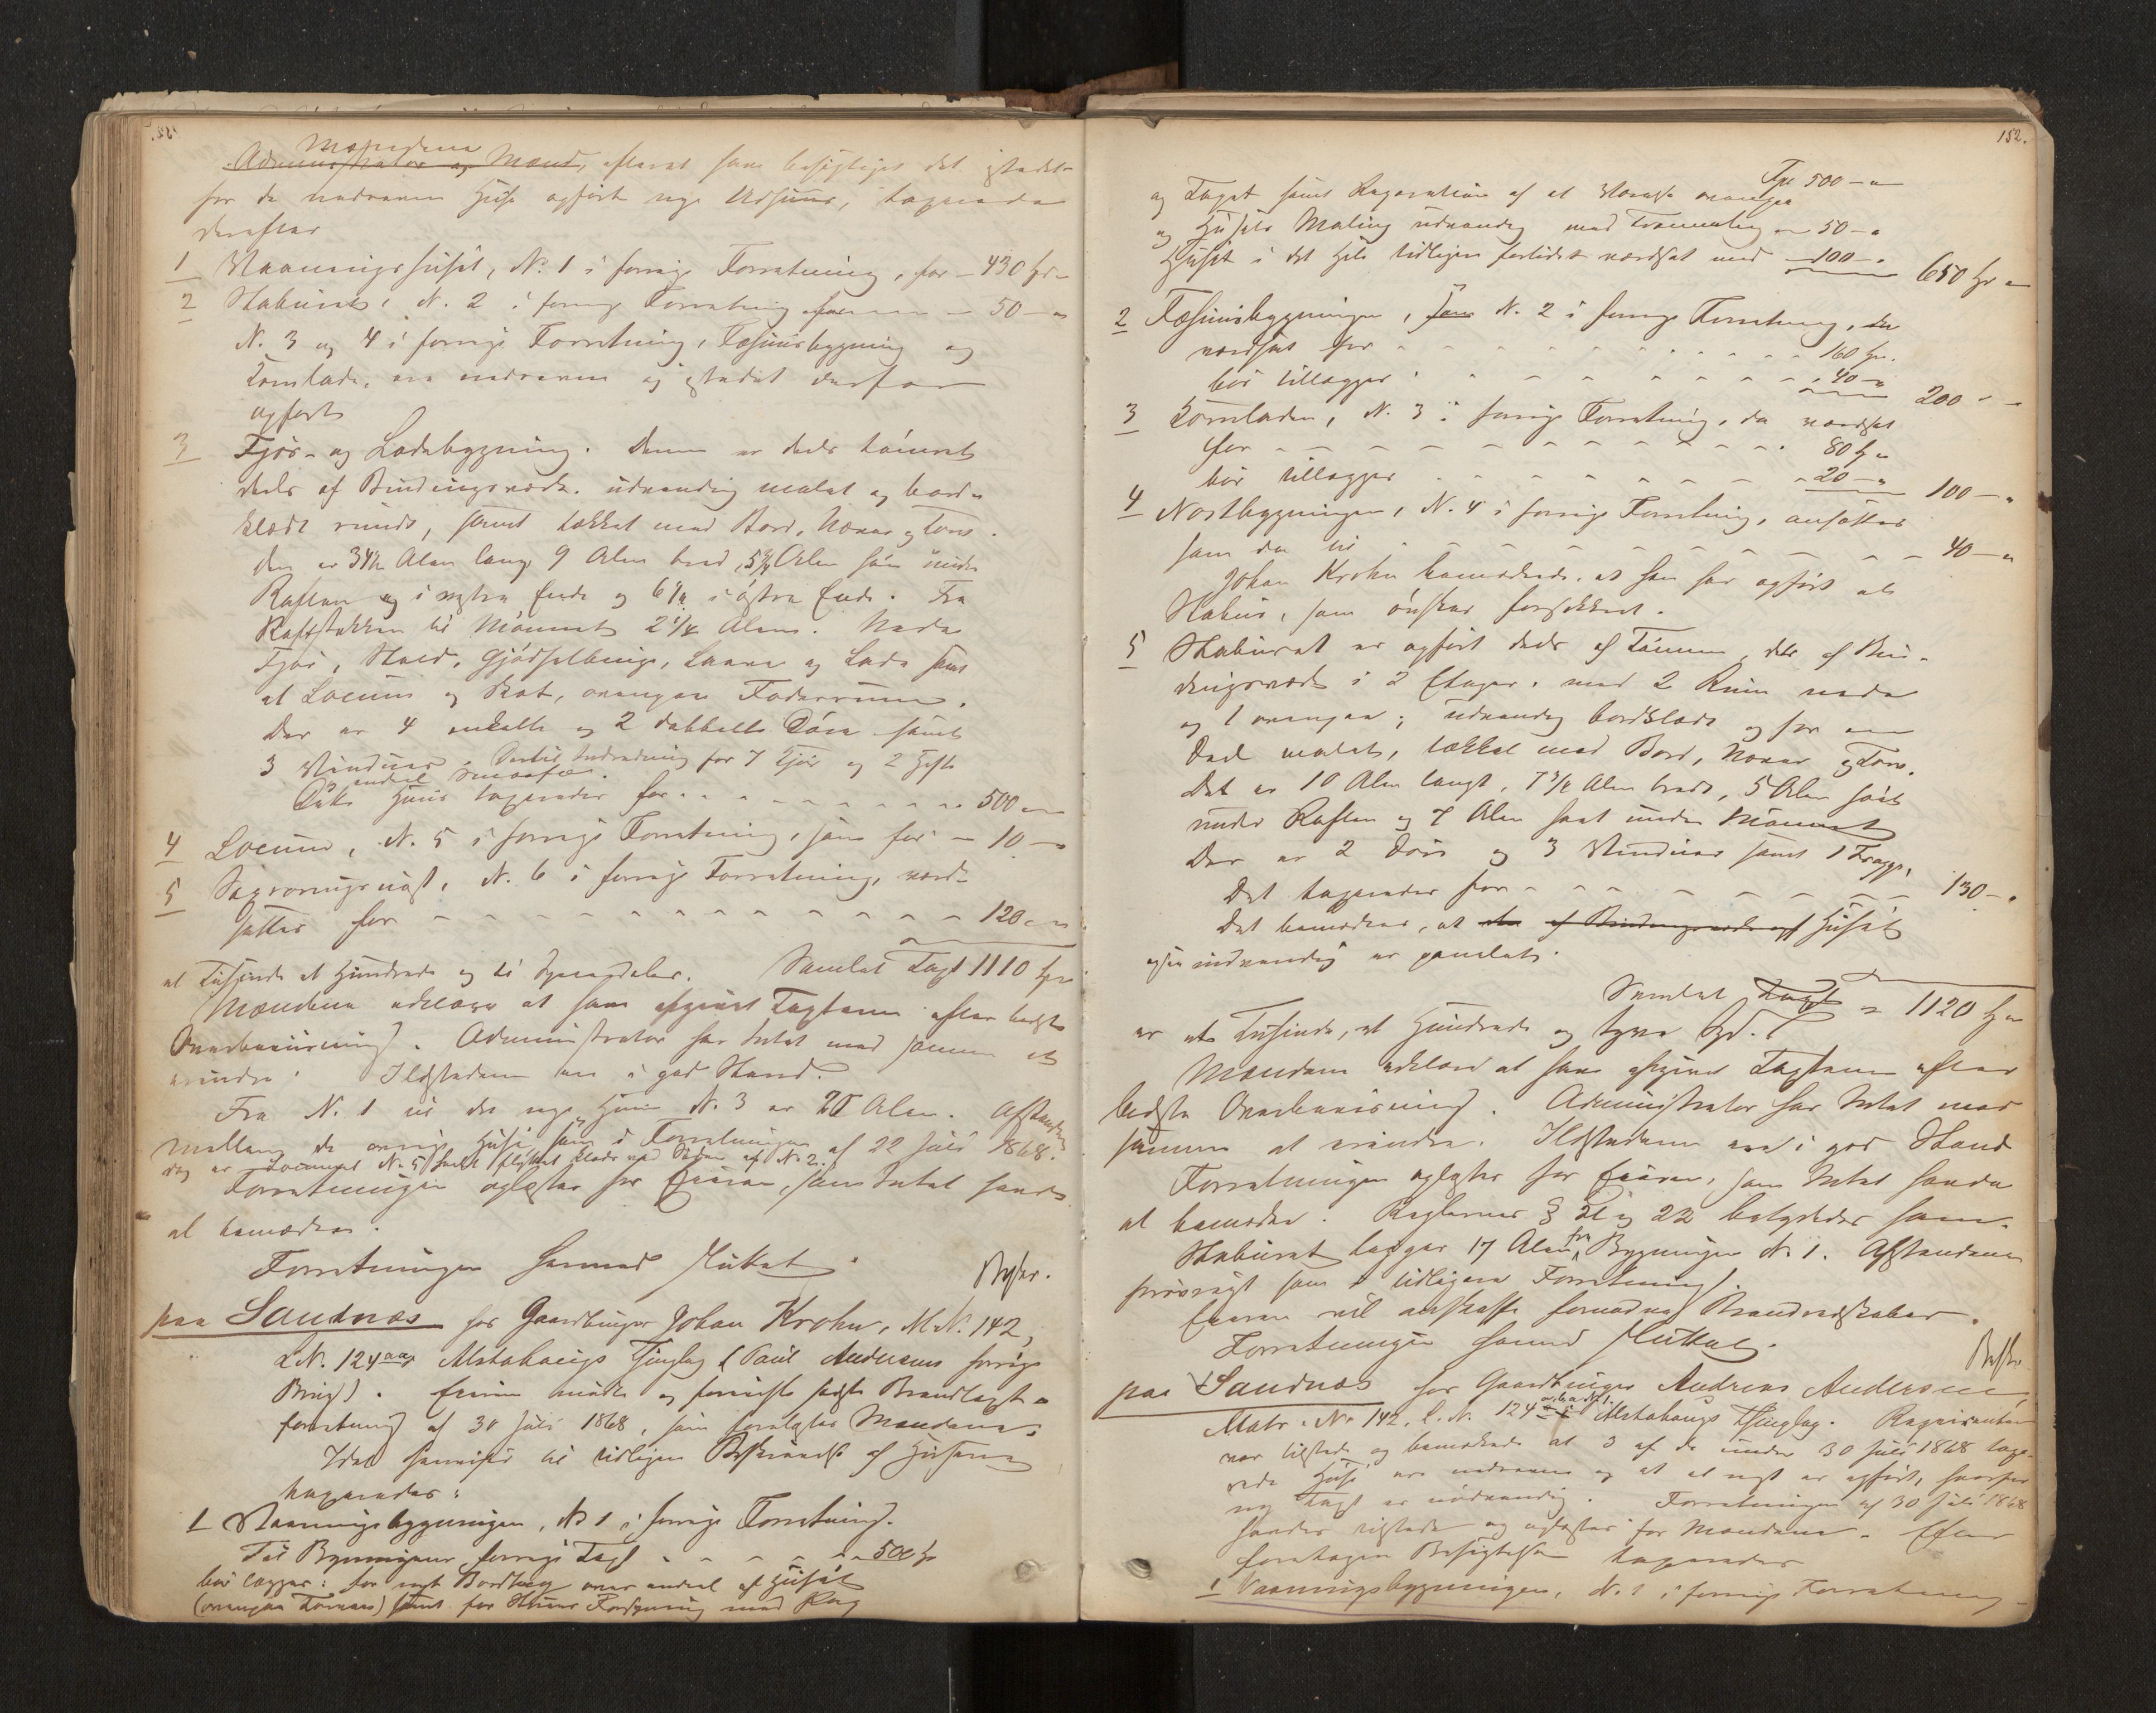 Mændene
Administrator og Mænd, efterat have besigtiget det istedet
for de nedrevne Huse opført nye Udhuus, taxerede
derefter
1 Vaaningshuset, N. 1 i forrige Forretning, for - 430 Spd
2 Staburet, N. 2 i forrige Forretning for - 50 -
N. 3 og 4 i forrige Forretning, Fæhuusbygning og
Kornlade, ere nedrevne og istedet derfor
opført
3 Fjøs- og Ladebygning. Denne er dels tømret
dels af Bindingsværk, udvendig malet og bord-
klædt rundt, samt tækket med Bord, Næver og Torv.
Den er 34½ Alen lang, 9 Alen bred, 5¾ Alen høi under
Raften i vestre Ende og 6¼ i østre Ende. Fra
Raftstokken til Mønnet 2¼ Alen. Nede
Fjøs, Stald, Gjødselbinge, Laave og Lade samt
et Locum og Bod, ovenpaa Foderrum.
Der er 4 enkelte og 2 dobbelte Døre samt
3 Vinduer. Indredning for 7 Kjør og 2 Heste
endel Smaafæ.
Dette Huus taxeredes for - 500 -
4 Locum, N. 5 i forrige Forretning, som før - 10 -
5 N. 6 i forrige Forretning, værd-
sættes for - 120 -
Samlet Taxt 1110 Spd
et Tusinde et Hundrede og ti Speciedaler.
Mændene erklære at have afgivet Taxterne efter bedste
Overbeviisning. Administrator har Intet mod samme at
erindre. Ildstederne ere i god Stand.
Fra N. 1 til det nye Huus N. 3 er 21 Alen. Afstanden
mellem de øvrige Huse som i Forretningen af 22 Juli 1868.
dog er Locumet N. 5 flyttet ved Siden af N. 2.
Forretningen oplæstes for Eieren, som Intet havde
at bemærke.
Forretningen hermed sluttet.
Beskr.
paa Sandnæs hos Gaardbruger Johan Krohn, M.N. 142,
L.N. 124 Alstahaugs Thinglag (Paul Andersens forrige
Brug). Eieren mødte og foreviste sidste Brandtaxt-
forretning af 30 Juli 1868, som forelæstes Mændene.
Idet henvises til tidligere Beskrivelse af Husene
taxeredes:
1 Vaaningsbygningen, N 1 i forrige Forretning.
Til Bygningens forrige Taxt - 500 Spd
bør lægges: for nyt Bordtag over endel af Huset
(ovenpaa Torven) samt for Forsyning med Rug
152.
Spd 500 -
og Taget samt Reparation af et Værelse ovenpaa
og Husets Maling udvendig med - 50 -
Huset i det Hele tidligere værdsat med - 100 -
650 Spd
2 Fæhuusbygningen, N. 2 i forrige Forretning, da
værdsat for - 160 Spd.
bør tillægges - 40 -
200 -
3 Kornladen, N. 3 i forrige Forretning, da værdsat
for - 80 Spd
bør tillægges - 20 -
100 -
4 Nøstbygningen, N. 4 i forrige Forretning, ansættes
som da til - 40 -
Johan Krohn bemærkede, at han har opført et
Stabur, som ønskes forsikkret.
5 Staburet er opført dels af Tømmer, dels af Bin-
dingsværk i 2 Etager, med 2 Rum nede
og 1 ovenpaa; udvendig bordklædt og for en
Deel malet, tækket med Bord, Næver og Torv.
Det er 10 Alen langt, 7¾ Alen bredt, 5 Alen høit
under Raften og 7 Alen høit under Mønnet
Der er 2 Døre og 3 Vinduer samt 1 Trappe.
Det taxeredes for - 130 -
Det bemærkes, at af Bindingsværk Huset
indvendig er panelet.
Samlet Taxt = 1120 Spd
er et Tusinde, et Hundrede og tyve Spd.
Mændene erklære at have afgivet Taxterne efter
bedste Overbeviisning. Administrator har Intet mod
samme at erindre. Ildstederne ere i god Stand
Forretningen oplæstes for Eieren, som Intet havde
at bemærke. Reglerne § 21 og 22 betydedes ham.
Staburet ligger 17 Alen fra Bygningen N. 1. Afstandene
forøvrigt som i tidligere Forretning.
Eieren vil anskaffe fornødne Brandredskaber.
Forretningen hermed sluttet.
Beskr.
paa Sandnæs hos Gaardbruger Andreas Andersen
Matr. N. 142, L.N. 124 Alstahaugs Thinglag. Requirenten
var tilstede og bemærkede at 3 af de under 30 Juli 1868 taxe-
rede Huse ere nedrevne og at et nyt er opført, hvorfor
ny Taxt er nødvendig. Forretningen af 30 Juli 1868
havdes tilstede og oplæstes for Mændene. Efter
foretagen Besigtelse taxeredes
1 Vaaningsbygningen, N. 1 i forrige Forretning